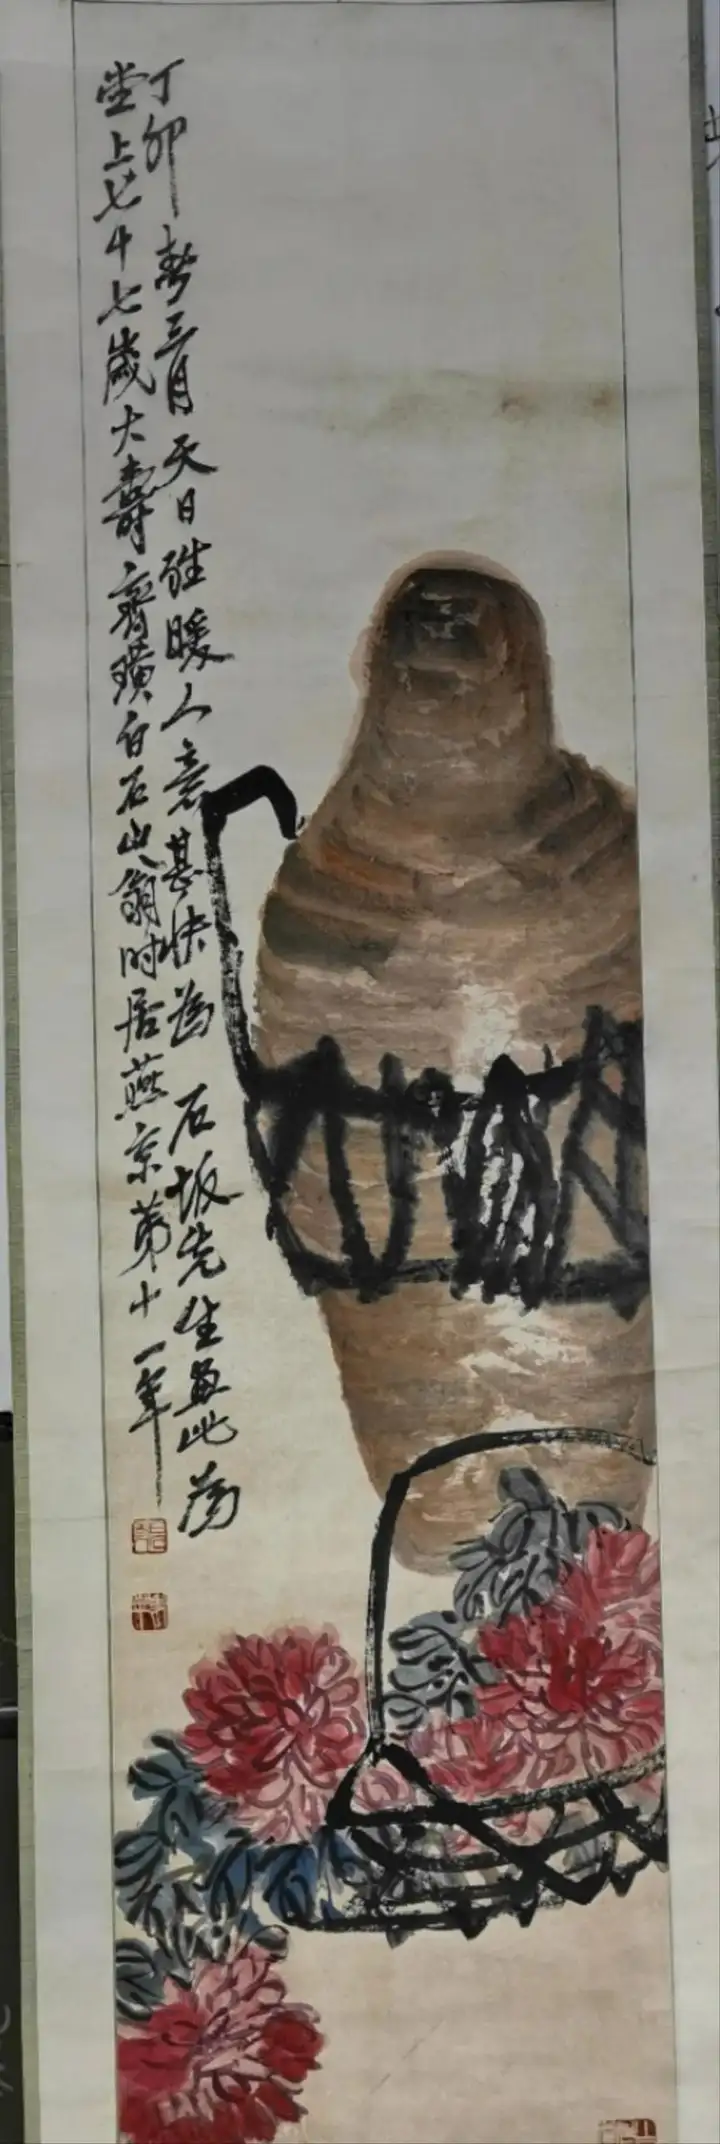 丁卯春三月天日雖暖人意甚快為 石坂先生畫此為
堂上七十七歲大壽齊璜白石山翁時居燕京第十一年